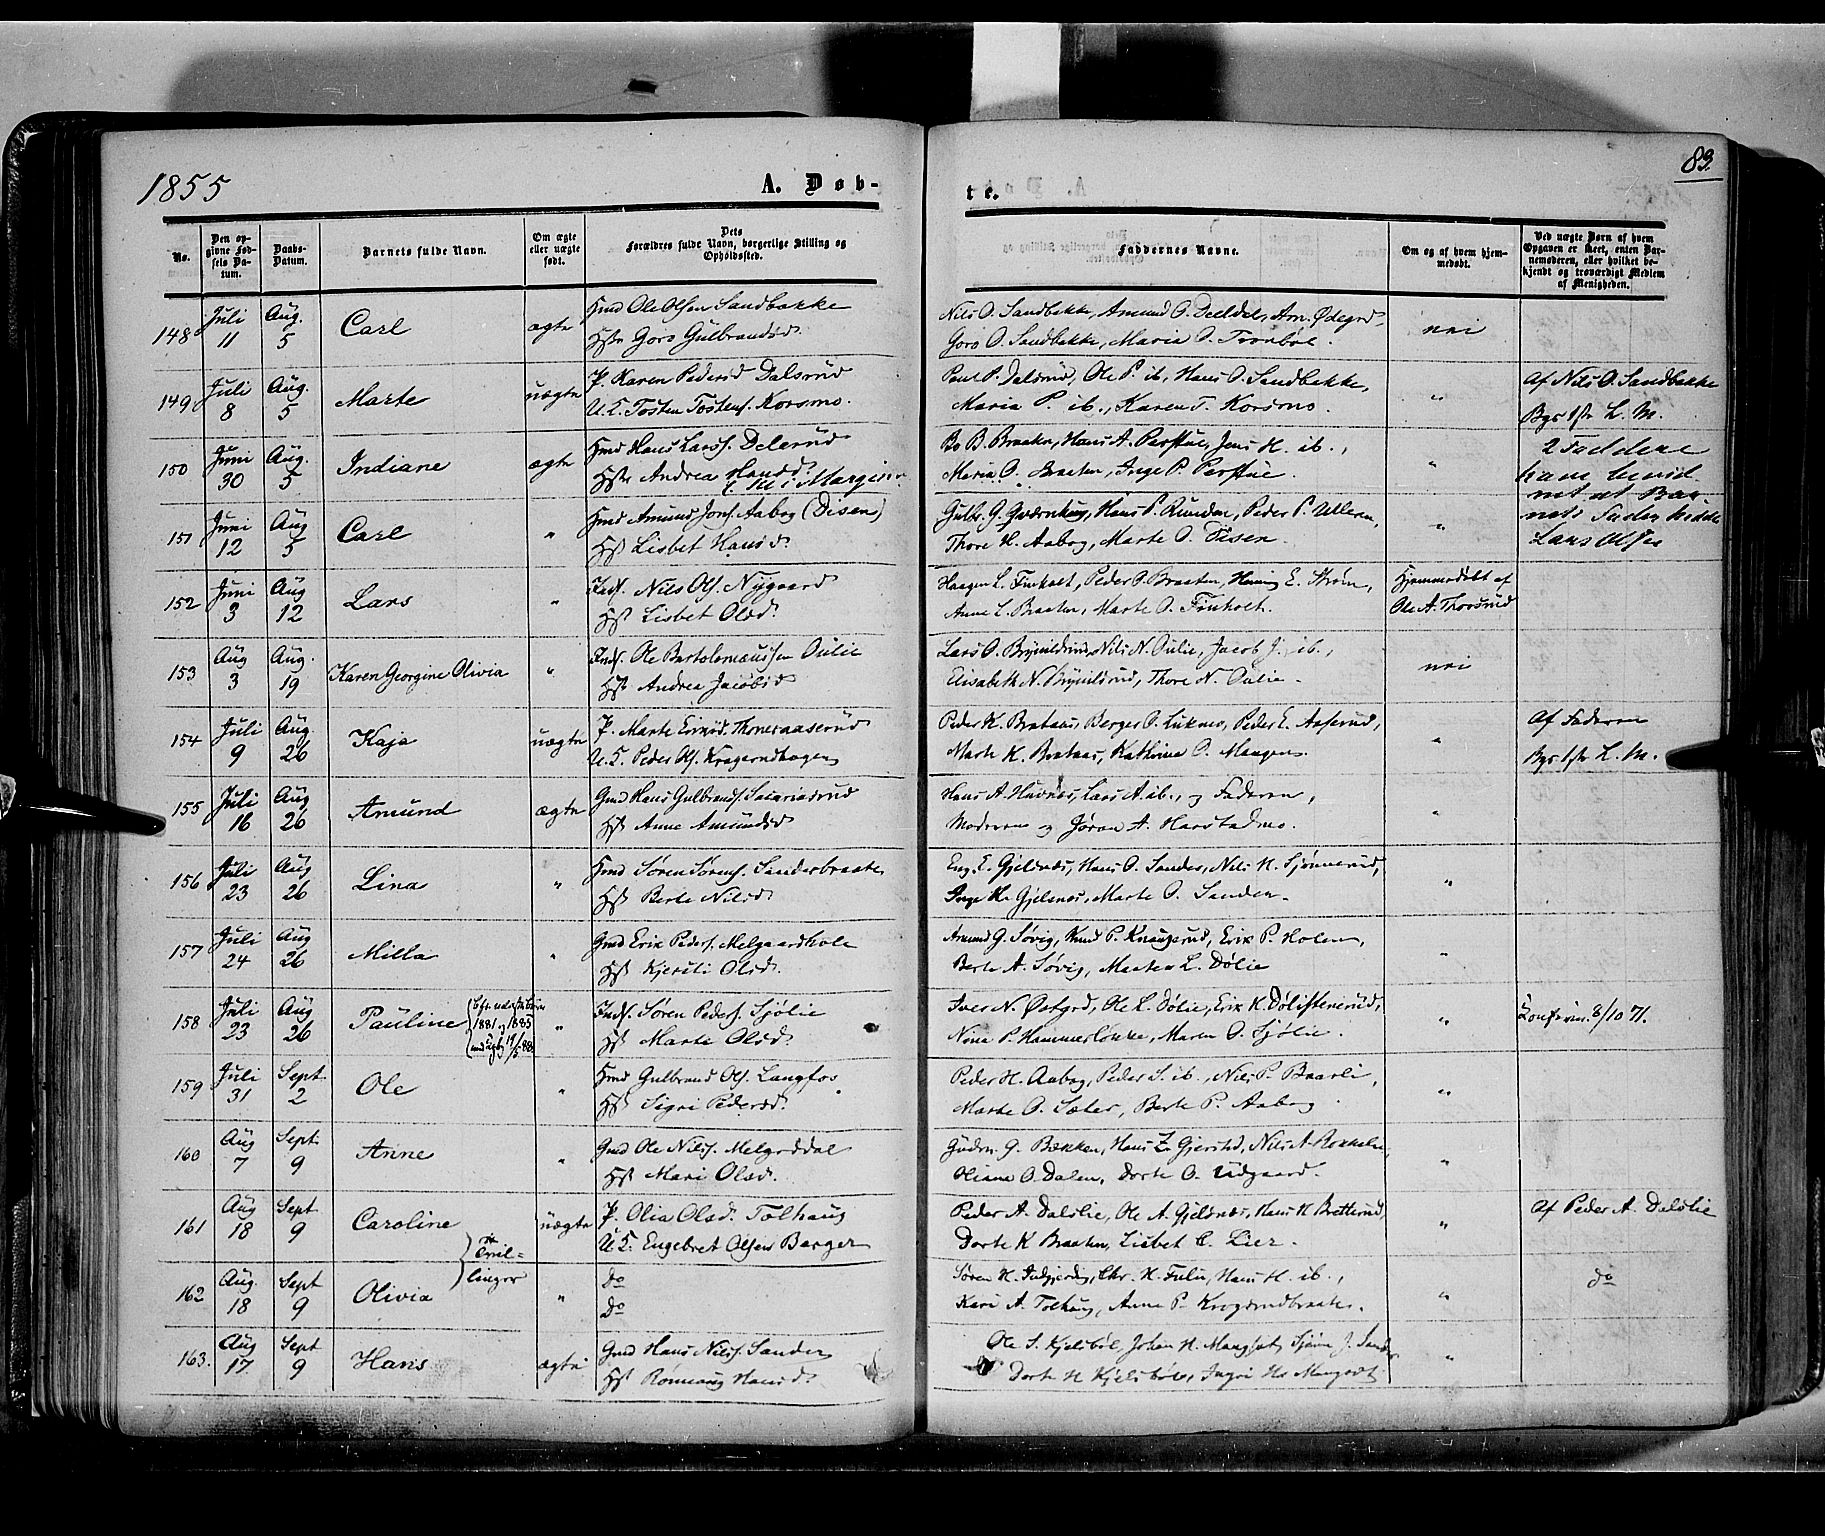 1855
A. Døb-
te.
83.
No.
Den op-
givne Fød-
sels Da-
tum.
Daabs-
Datum.
Barnets fulde Navn.
Om ægte
eller uægte
født.
Dets
Forældres fulde Navn, borgerlige Stilling og
Opholdssted.
Faddernes Navne.
Om og af hvem hjem-
medøbt.
Ved uægte Børn af hvem
Opgaven er skeet, enten Bar-
nemoderen, eller hvilket be-
kjendt og troværdigt Medlem
af Menigheden.
148 Juli 11 Aug. 5 Carl ægte Hmd Ole Olsen Sandbakke
Hst. Goro Gulbrandsd.
Nils O. Sandbakke, Amund O. Am. Ødegrd,
Goro O. Sandbakke, Maria O. Tronbøl.
nei
149 Juli 8 Aug. 5 Marte uægte P. Karen Pedersd Dalsrud
U.K. Tosten Tostens. Korsmo.
Paul P. Dalsrud, Ole P. ib., Hans O. Sandbakke,
Maria P. ib., Karen T. Korsmo.
"
Af Nils O. Sandbakke
Bgs 1ste L. M.
150 Juni 30 Aug. 5 Indiane ægte Hmd Hans Larss. Delerud
Hst. Andrea Hansd.
Bo B. Braaten, Hans A. Perstue, Jens H. ib.,
Maria O. Braaten, Inge P. Perstue.
"
2 Faddere
151 Juni 12 Aug 5 Carl " Hmd Amund Jons. Aabog (Disen)
Hst Lisbet Hansd.
Gulbr. G. Gværnhaug, Hans P. Runden, Peder P. Ulleren,
Thore H. Aabog, Marte O. Tisen.
"
nets Fader hedde
Lars Olsen
152 Juni 3 Aug 12 Lars " Inds. Nils Ols. Nygaard
Hst Lisbet Olsd.
Haagen L. Finholt, Peder O. Braaten, Henning E. Strøm,
Anne L. Braaten, Marte O. Finholt.
Hjemmedøbt af
Ole A. Thorsrud
153 Aug 3 Aug. 19 Karen Georgine Olivia " Inds. Ole Bartolomæussen Oulie
Hst Andrea Jacobsd
Lars O. Brynildsrud, Nils N. Oulie, Jacob J. ib.,
Elisabeth N. Brynildsrud, Thore N. Oulie.
nei
154 Juli 9 Aug. 26 Kaja uægte P. Marte Thoneraaserud
U.K. Peder Ols. Kragerudhagen
Peder K. Brataas, Berger O. Lukmo, Peder E. Aaserud,
Marte K. Brataas, Kathrine O. Mangen.
"
Af Faderen
Bgs 1ste L. M.
155 Juli 16 Aug 26 Amund ægte Gmd Hans Gulbrands. Sacariasrud
Hst Anne Amundsd
Hans A. Huvnes, Lars A. ib., og Faderen,
Moderen og Jøran A. Harstadmo.
"
156 Juli 23 Aug 26 Lina " Hmd Søren Sørens. Sanderbraaten
Hst Berte Nilsd.
Eng. E. Gjelsnes, Hans O. Sander, Nils H. Sjønnerud,
Inge H. Gjelsnes, Marte O. Sander.
"
157 Juli 24 Aug 26 Milla " Gmd Erik Peders. Melgaardhole
Hst Kjersti Olsd.
Amund G. Søvig, Knud P. Knaugerud, Erik P. Holen,
Berte A. Søvig, Maeten L. Dølie
"
158 Juli 23 Aug 26 Pauline " Inds. Søren Peders. Sjølie
1881 og 1885
Hst Marte Olsd.
Iver N. Østgrd, Ole L. Dølie, Erik K. Dølistenerud,
Nina P. Hammerlønke, Maren O. Sjølie.
"
8/10 71.
159 Juli 31 Sept 2 Ole " Hmd Gulbrand Ols. Langfos
Hst Sigri Pedersd.
Peder H. Aabog, Peder S. ib., Nils P. Baarli,
Marte O. Sæter, Berte P. Aabog
"
160 Aug 7 Sept. 9 Anne " Gmd Ole Nilss. Melgrddal
Hst Mari Olsd.
Gudm. G. Bækken, Hans Z. Gjerstd, Nils A.
Oliane O. Dalen, Dorte O. Udgaard
"
161 Aug 18 Sept 9 Caroline uægte P. Olia Olsd. Tolhaug
U.K. Engebret Olsen Berger
Tvil-
linger
Peder A. Dalslie, Ole A. Gjelsnes, Hans H. Bretterud,
Dorte K Braaten, Lisbet C. Lier.
"
Af Peder A. Dalslie
162 Aug. 18 Sept 9 Olivia " Do
Do
Søren H. Chr. H. Fulu, Hans H. ib.,
Kari A. Tolhaug, Anne P. Krogsrudbraaten.
"
do
163. Aug 17. Sept 9 Hans ægte Gmd Hans Nilss. Sander
Hst Rønnaug Hansd.
Ole S. Kjelsbøl, Johan H. Mangset,
Dorte H Kjelsbøl, Ingri Mangset
"